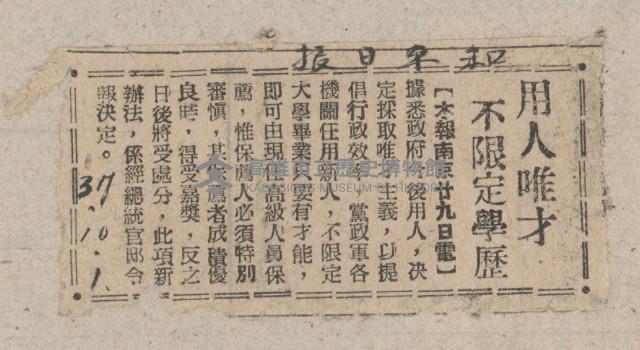 和平日报
用人唯才
不限定學歷
【本報南京廿九日電】
據悉政府今後用人，決
定採取唯才主義，以提
倡行政效率，黨政軍各
機關任用新人，不限定
大學畢業只要有才能，
即可由現任高級人員保
薦，惟保薦人必須特別
審慎，其保薦者成積優
良時，得受嘉獎，反之
日後將受處分，此項新
辦法，係經總統官邸令
報決定。
37.10.1.
高雄市立歷史博物館
KAOHSIUNG MUSEUM OF HISTORY